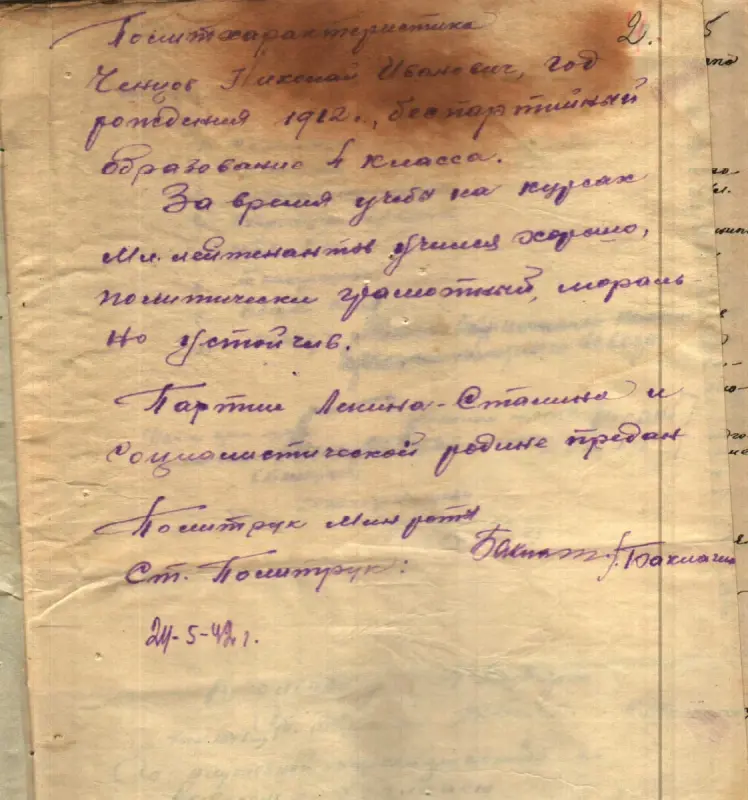 2.
Политхарактеристика
Ченцов Николай Иванович, год
рождения 1912г., беспартийный
образование 4 класса.
За время учебы на курсах
Мл. лейтенантов учился хорошо,
политически грамотный, мораль-
но устойчив.
Партии Ленина-Сталина и
социалистической родине предан
Политрук Мин роты
Ст. Политрук:
24-5-42 г.